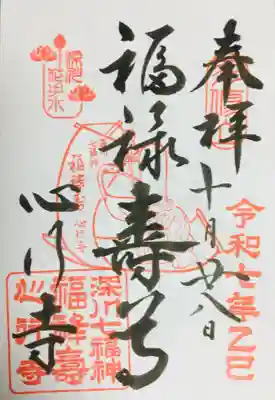 奉拝
十月廿八日
令和七年乙巳
福禄寿尊
心行寺
深川七福神
福祿壽
心行寺